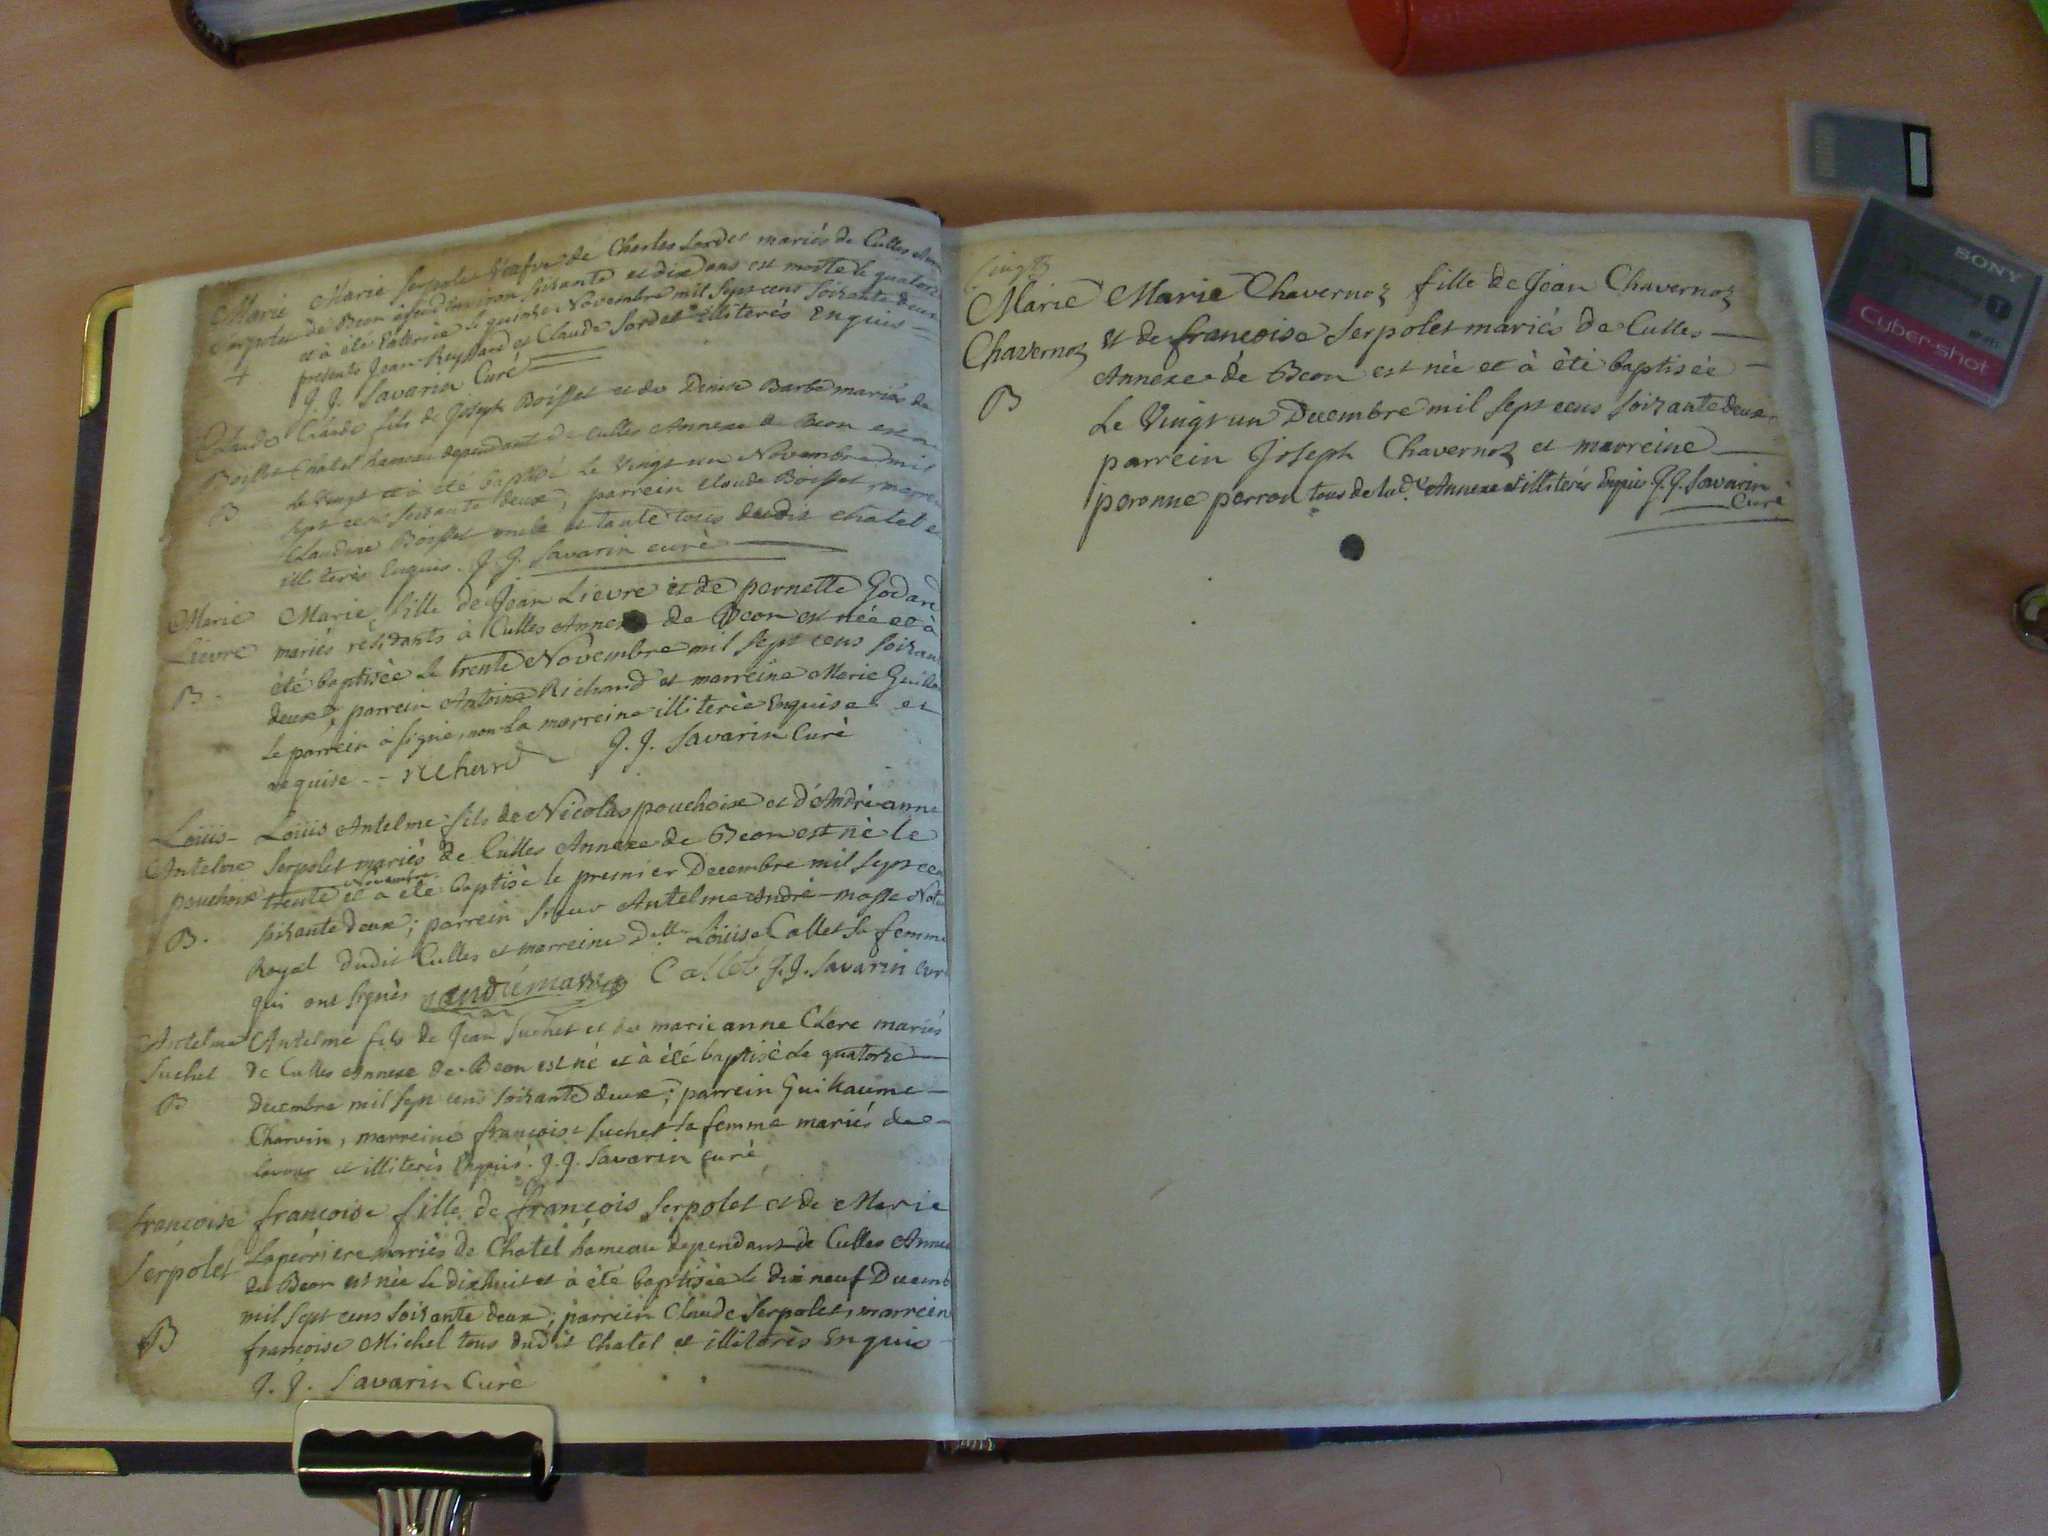 Marie Marie Serpolet Veufve de Charles Sordet mariés de Culles
Serpolet de Beon agée d'environ soixante et dix ans est morte le quatorze
et à été Enterrée le quinze Novembre mil sept cens soixante deux
+ presents Jean Reydard et Claude Sordet illiterés Enquis
J. J. Savarin Curé
Claude Claude fils de Joseph Boisset et de Denise Barbe mariés de
Boisset Chatel hameau dependant de Culles Annexe de Beon est né
B le Vingt et à été baptisé le Vingt un Novembre mil
sept cens soixante deux, parrein Claude Boisset, marre
Claudine Boisset oncle et tante tous dudit Chatel et
illiterés Enquis. J. J. Savarin curé
Marie Marie, fille de Jean Lievre et de pernette Godard
Lievre mariés residants à Culles Annexe de Beon est née et à
B. été baptisée le trente Novembre mil sept cens soixan
deux, parrein Antoine Richard et marreine Marie
le parrein à signé, non la marreine illiterée Enquise et
requise -- richard J. J. Savarin Curé
Loüis- Loüis Antelme fils de Nicolas pouchoix et d'Andréanne
Antelme Serpolet mariés de Culles Annexe de Beon est né le
pouchoix trente Novembre et a été baptisé le premier Decembre mil sept cen
B. soixante deux; parrein Sieur Antelme André-masse Not
Royal dudit Culles et marreine Dlle Loüise Callet sa femme
qui ont signés andrémasse Callet J. J. Savarin cur
Antelme Antelme fils de Jean Suchet et de marieanne Clere mariés
Suchet de Culles Annexe de Beon est né et à été baptisé le quatorze
B Decembre mil sept cens soixante deux; parrein Guillaume
Charvin, marreine françoise Suchet sa femme mariés de
lavour et illiterés Enquis. J. J. Savarin curé
françoise françoise fille de françois Serpolet et de Marie
Serpolet Laperriere mariés de Chatel hameau dependant de Culles Annex
de Beon est née le dixhuit et à été baptisée le dix neuf Decemb
mil sept cens soixante deux; parrein Claude Serpolet, marrein
B françoise Michel tous dudit Chatel et illiterés Enquis
J. J. Savarin Curé
Marie Marie Chavernoz fille de Jean Chavernoz
Chavernoz et de françoise Serpolet mariés de Culles
Annexe de Beon est née et à été baptisée
B Le Vingt un Decembre mil sept cens soixante deux
parrein Joseph Chavernoz et marreine
peronne perron tous de lad. Annexe et illiterés Enquis J. J. Savarin
Curé
SONY
Cyber-shot